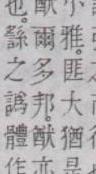 小雅。匪大猶是
猷爾多邦。猷亦
也。繇之譌體作